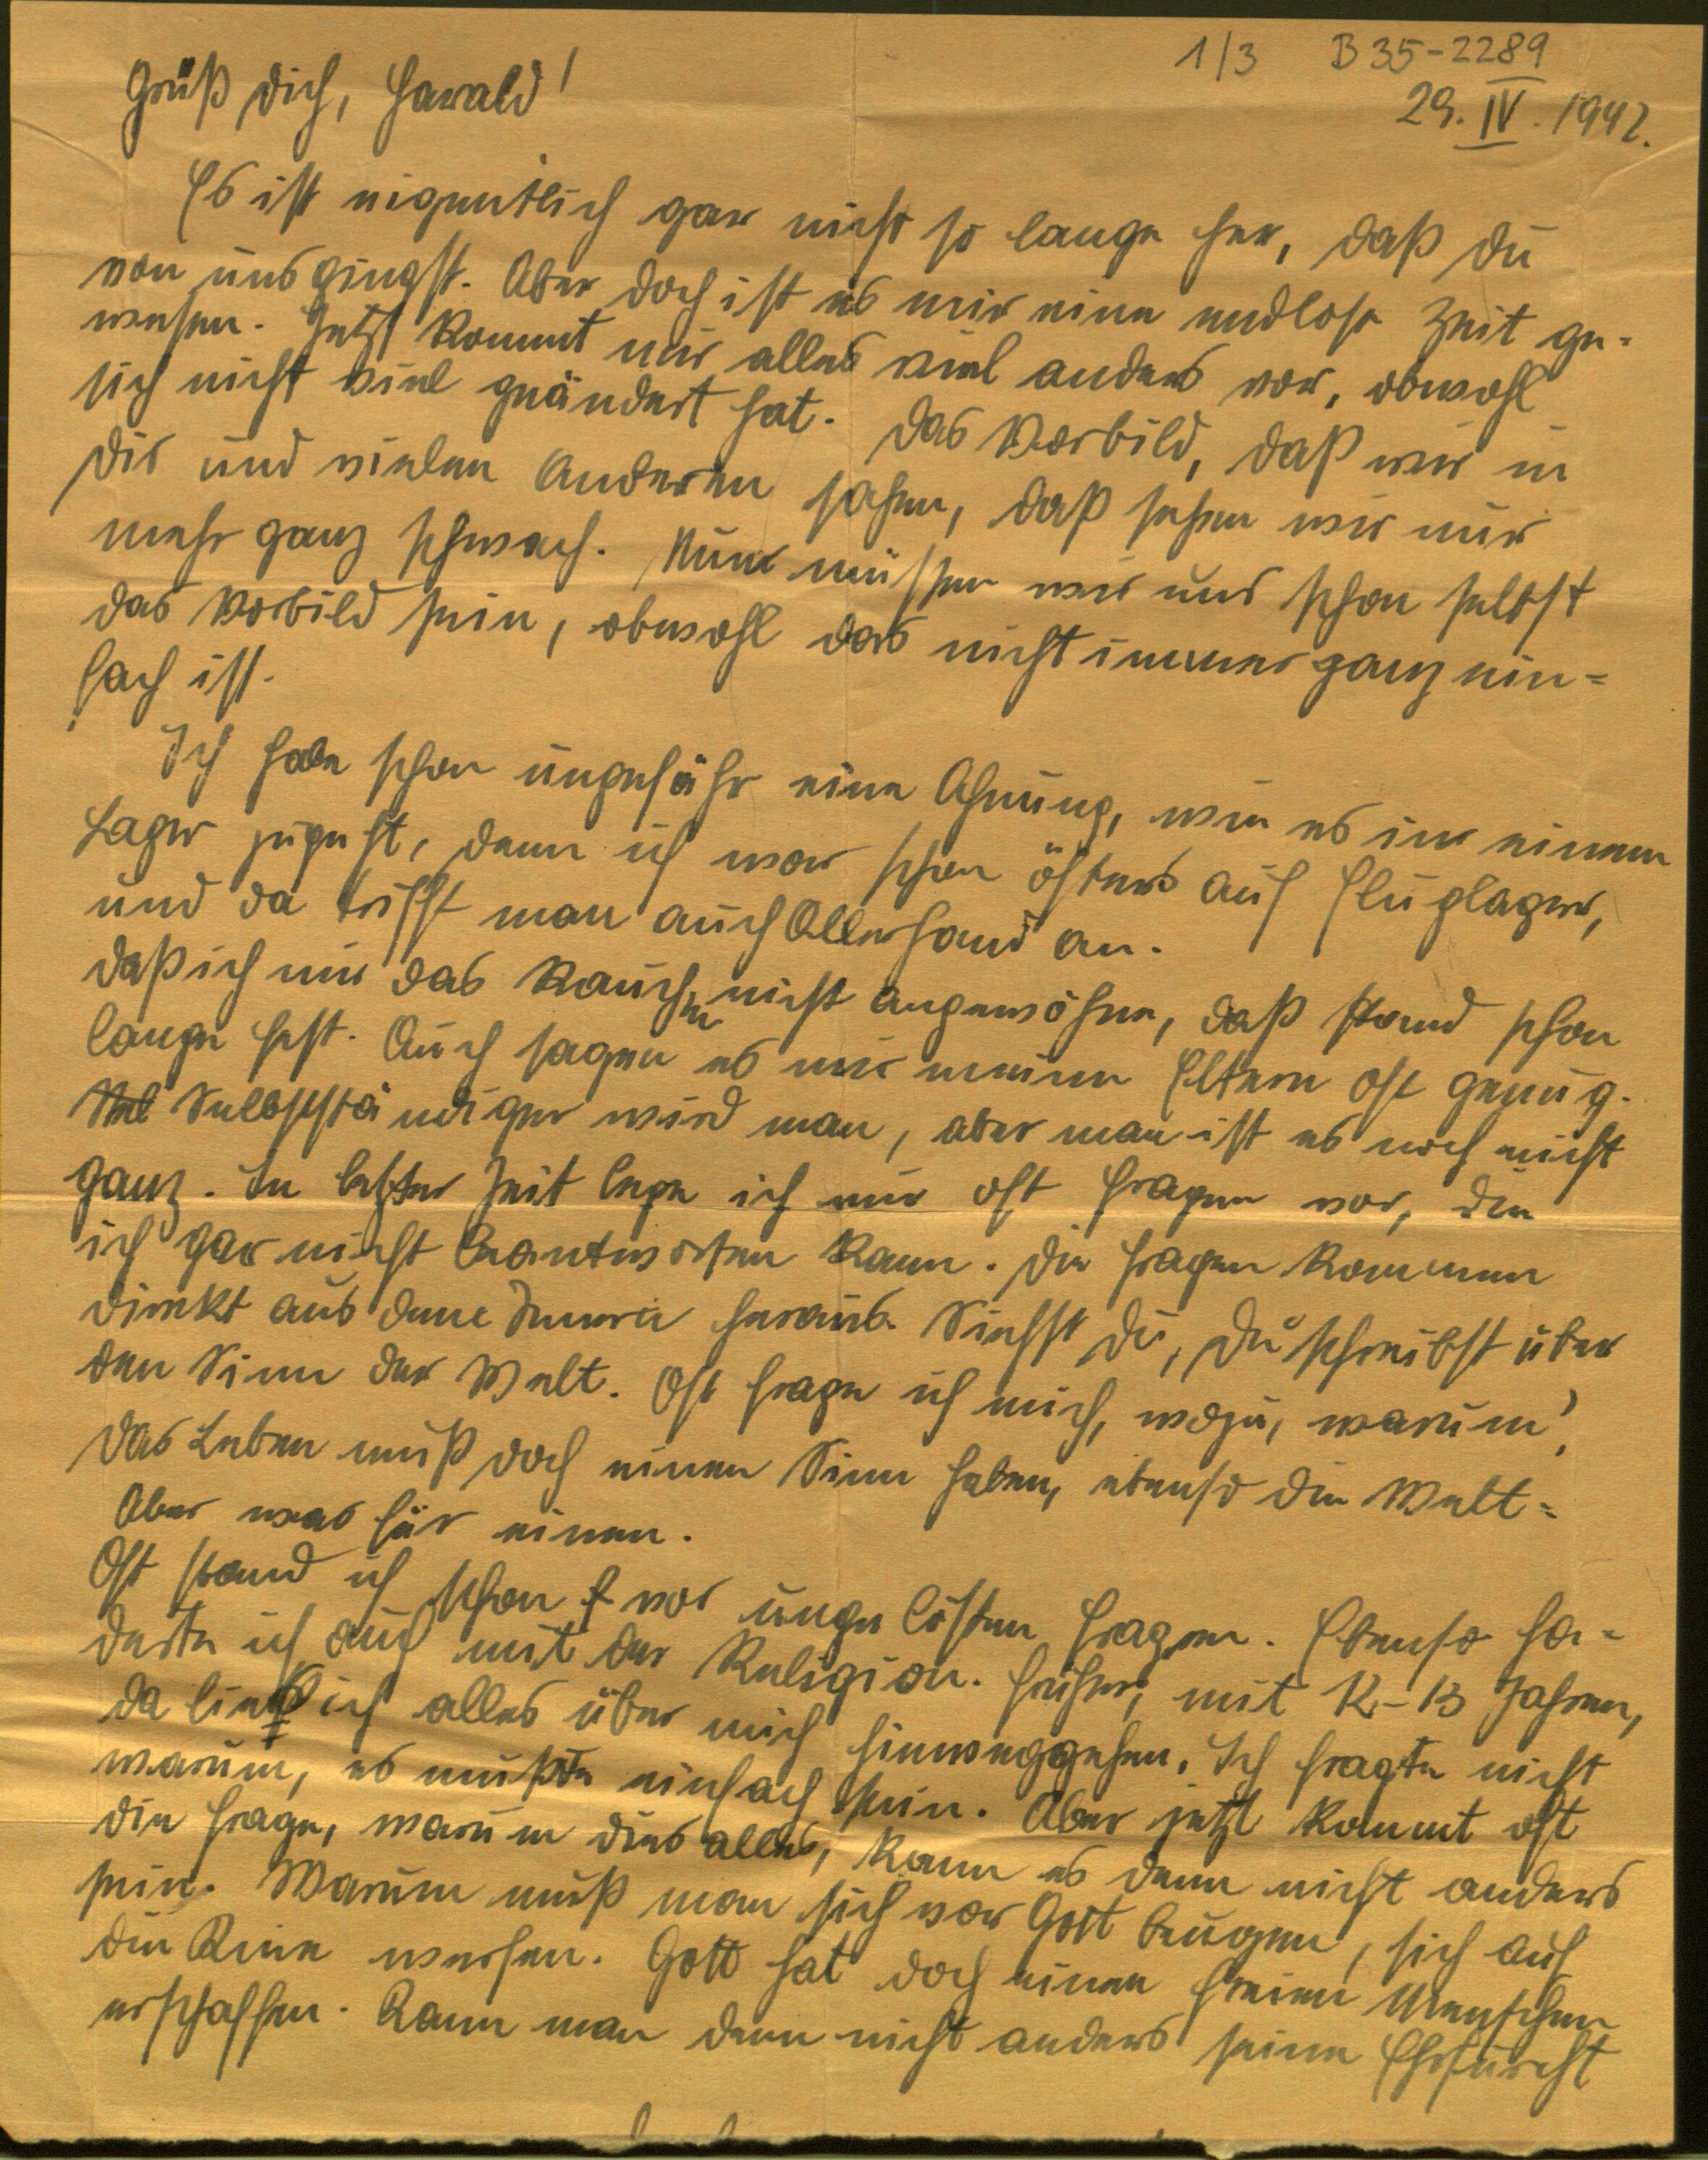 1/3 B 35-2289
29. IV. 1942.
Grüß Dich, Harald!
Es ist eigentlich gar nicht so lange her, daß Du
von uns gingst. Aber doch ist es mir eine endlose Zeit ge=
wesen. Jetzt kommt mir alles viel anders vor, obwohl
sich nicht viel geändert hat. Das Vorbild, daß wir in
Dir und vielen Anderen sahen, daß sehen wir nur
mehr ganz schwach. Nun müssen wir uns schon selbst
das Vorbild sein, obwohl das nicht immer ganz ein=
fach ist.
Ich habe schon ungefähr eine Ahnung, wie es in einem
Lager zugeht, denn ich war schon öfters auf Fluglager,
und da trifft man auch Allerhand an.
Daß ich mir das Rauchen nicht angewöhne, daß stand schon
lange fest. Auch sagen es mir meine Eltern oft genug.
Selbstständiger wird man, aber man ist es noch nicht
ganz. In letzter Zeit lege ich mir oft Fragen vor, die
ich gar nicht beantworten kann. Die Fragen kommen
direkt aus dem Innern heraus. Siehst Du, Du schreibst über
den Sinn der Welt. Oft frage ich mich, wozu, warum?
Das Leben muß doch einen Sinn haben, ebenso die Welt=
Aber was für einen.
Oft stand ich schon vor ungelösten Fragen. Ebenso ha=
derte ich auch mit der Religion. Früher, mit 12-13 Jahren,
da ließ ich alles über mich hinweggehen. Ich fragte nicht
warum, es mußte einfach sein. Aber jetzt kommt oft
die Frage, warum dies alles, kann es denn nicht anders
sein. Warum muß man sich vor Gott beugen, sich auf
die Knie werfen. Gott hat doch einen freien Menschen
erschaffen. Kann man denn nicht anders seine Ehrfurcht